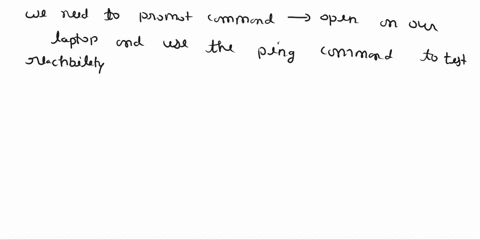 we need to promot command → open on our
laptop and use the ping command to test
reachbility